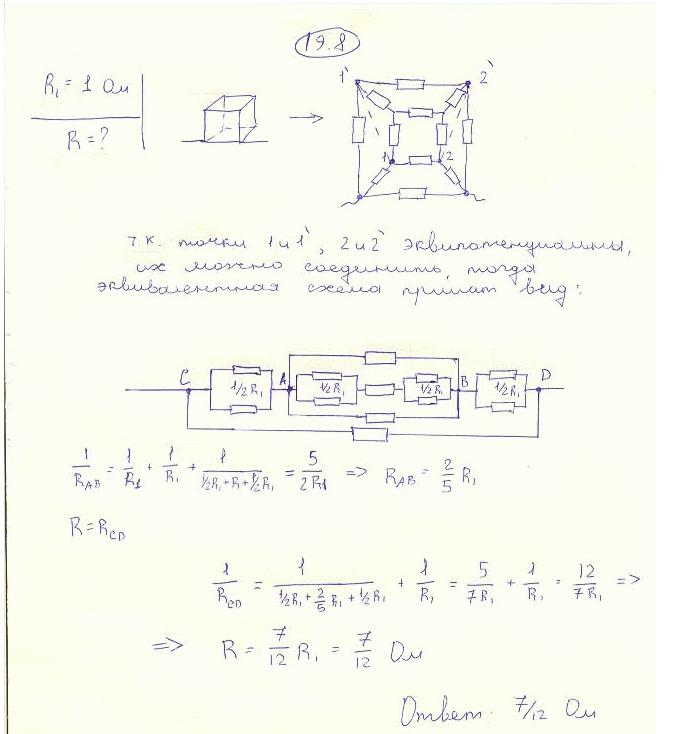 19.8
R₁ = 1 Ом
R = ?
1` 2`
1 2
т.к. точки 1 и 1`, 2 и 2` эквипотенциальны,
их можно соединить, тогда
эквивалентная схема примат вид:
C 1/2 R₁ A 1/2 R₁ 1/2 R₁ B 1/2 R₁ D
1/R_AB = 1/R₁ + 1/R₁ + 1/(1/2 R₁ + R + 1/2 R₁) = 5/(2R₁) => R_AB = 2/5 R₁
R = R_CD
1/R_CD = 1/(1/2 R₁ + 2/5 R₁ + 1/2 R₁) + 1/R₁ = 5/(7R₁) + 1/R₁ = 12/(7R₁) =>
=> R = 7/12 R₁ = 7/12 Ом
Ответ. 7/12 Ом